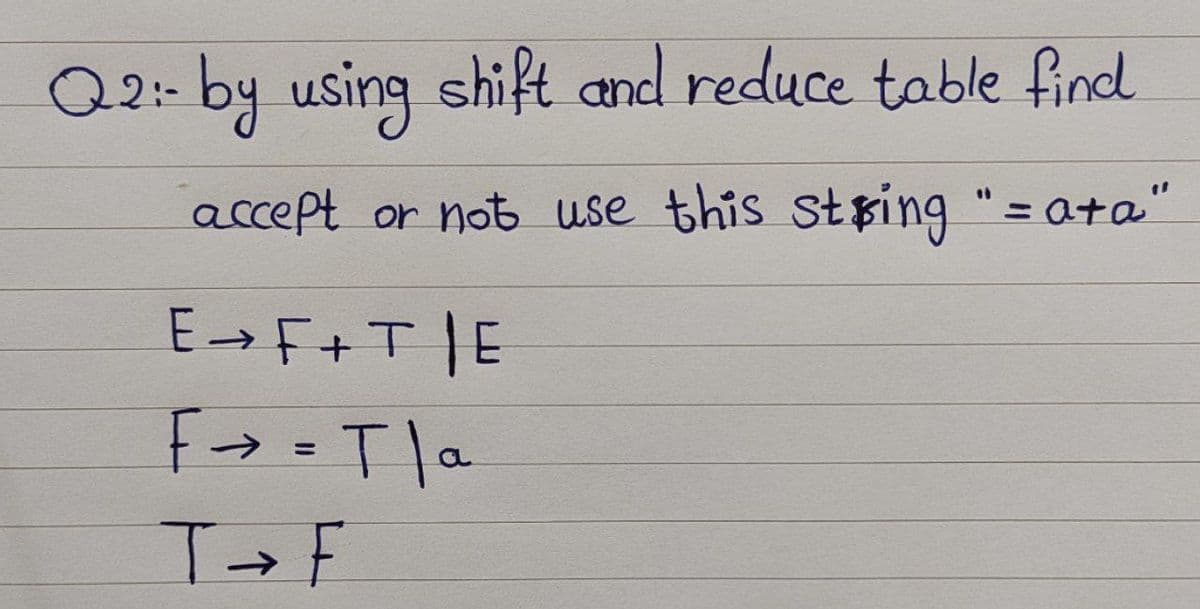 Q2:- by using shift and reduce table find
accept or not use this string "= a+a"
E → F + T | E
F → = T | a
T → F